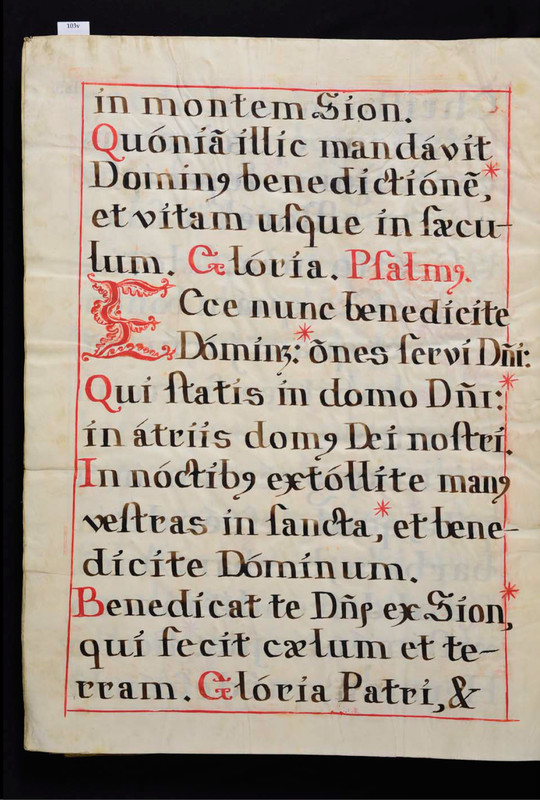 103v
in montem Sion.
Quóniã illic mandávit
Dominꝰ benedictiónẽ,*
et vitam uſque in ſæcu-
lum. Glória. Pſalmꝰ.
Ecce nunc benedícite
Dóminũ:* õnes ſervi Dñi:
Qui ſtatis in domo Dñi:*
in átriis domꝰ Dei noſtri.
In nóctibꝰ extóllite manꝰ
veſtras in ſancta,* et bene-
dícite Dóminum.
Benedicat te Dñꝰ ex Sion,*
qui fecit cælum et te-
rram. Glória Patri, &